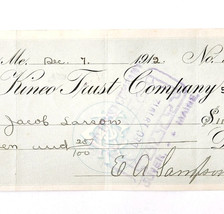 Mo. Dec. 7, 1912 No.
Kineo Trust Company
Jacob Larson $11
en and 25/100
E A Sampson